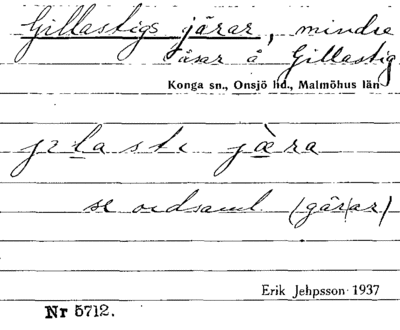 Gillastigs jårar, mindre
åsar å Gillastig
Konga sn., Onsjö hd., Malmöhus län
se ordsaml. (gårar)
Erik Jehpsson 1937
Nr 5712.